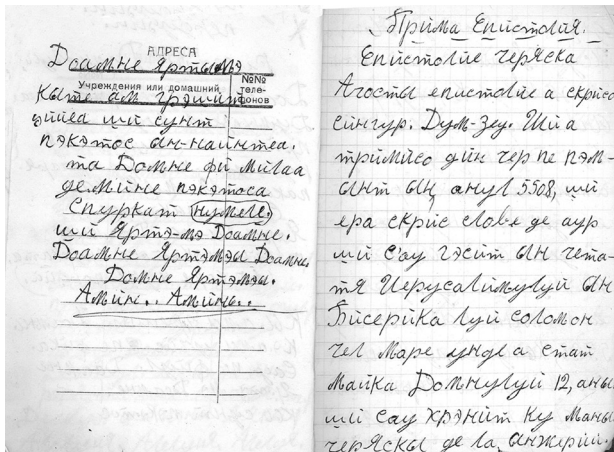 АДРЕСА
Доамне яртымэ
Учреждения или домашний
№№ теле-фонов
кыте ам грэшит
шй сунт
пэкэтос ын-наинтеа.
та Домне фй милаа
де мйне пэкэтоса
спуркат нумеле.
шй яртэ-мэ Доамне.
Доамне яртэмэы Доамне.
Домне яртэмэы.
Амйн.. Амйнь..
Прйма Епистолия.
Епистолйе черяска
Ачосты епистолйе а скрйсо
сйнгур. Дум-Зеу. Шй а
трймйсо дйн чер пе пэм-
ынт ын, анул 5508, шй
ера скрйс словл де аур
шй с'ау гэсит ын чета-
тя Иерусалймулуй ын
Бйсерйка луй соломон
чел маре унде а стат
майка Домнулуй 12, аны
шй сау хрэнйт ку маны
черяскы де ла, анжерйй.